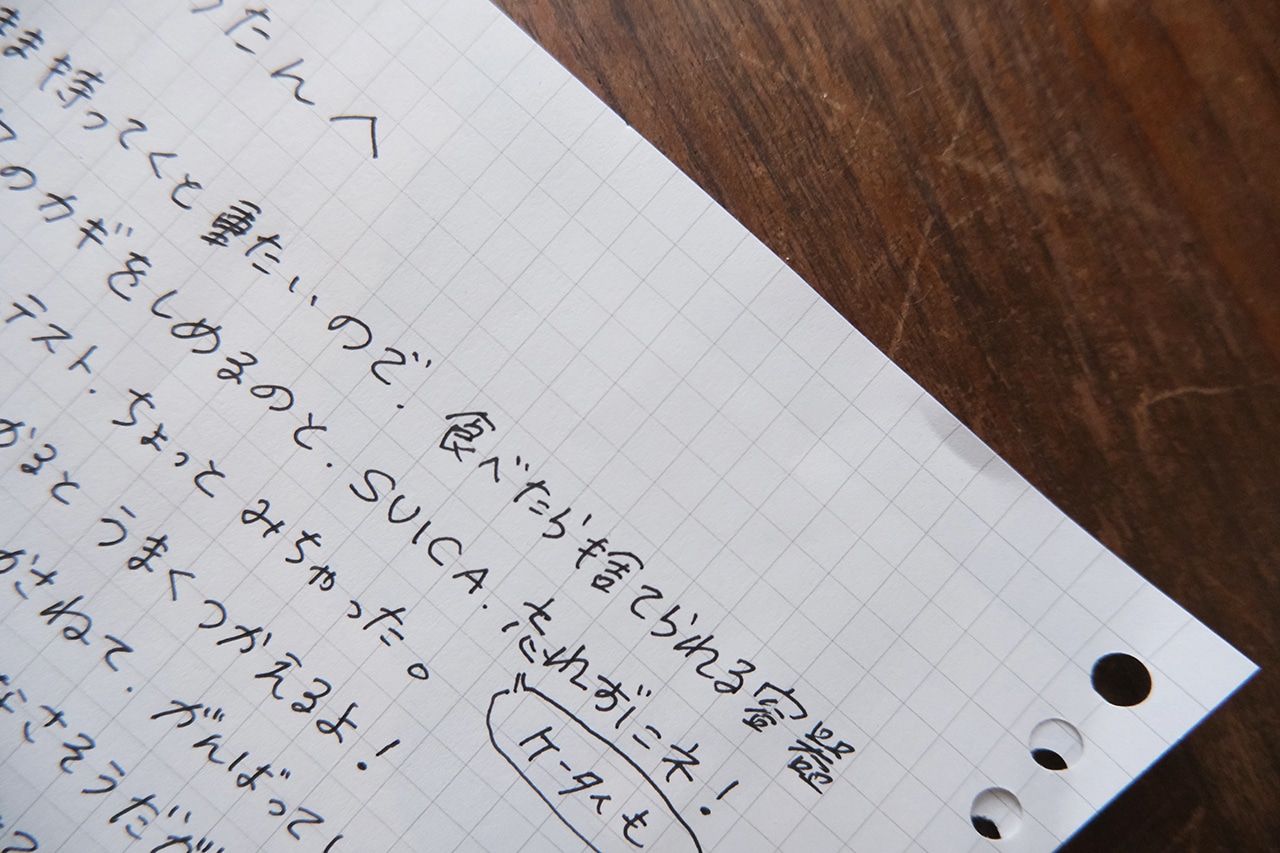 たんへ
まま持ってくと重たいので、食べたら捨てられる容器
のカギをしめるのと、SUICA、忘れずにネ!
ケータイも
テスト、ちょっとみちゃった。
かるとうまくつかえるよ!
かさねて、がんばって
なさそうだが